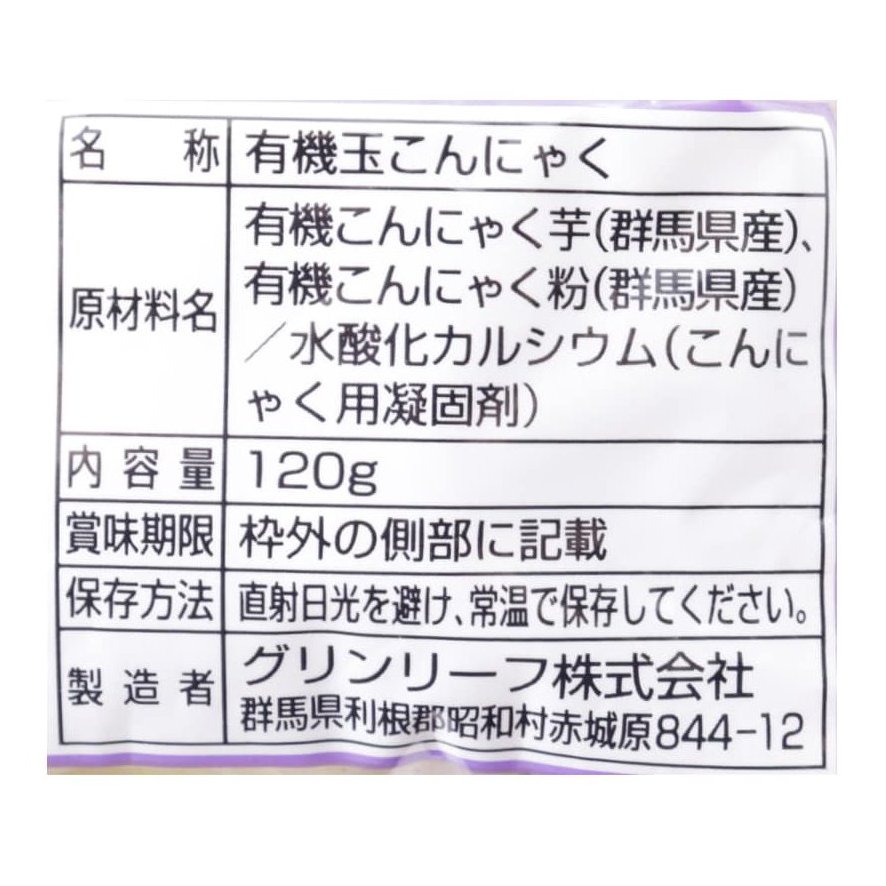 名称 有機玉こんにゃく
原材料名 有機こんにゃく芋(群馬県産)、
有機こんにゃく粉(群馬県産)
/水酸化カルシウム(こんに
ゃく用凝固剤)
内容量 120g
賞味期限 枠外の側部に記載
保存方法 直射日光を避け、常温で保存してください。
製造者 グリンリーフ株式会社
群馬県利根郡昭和村赤城原844-12